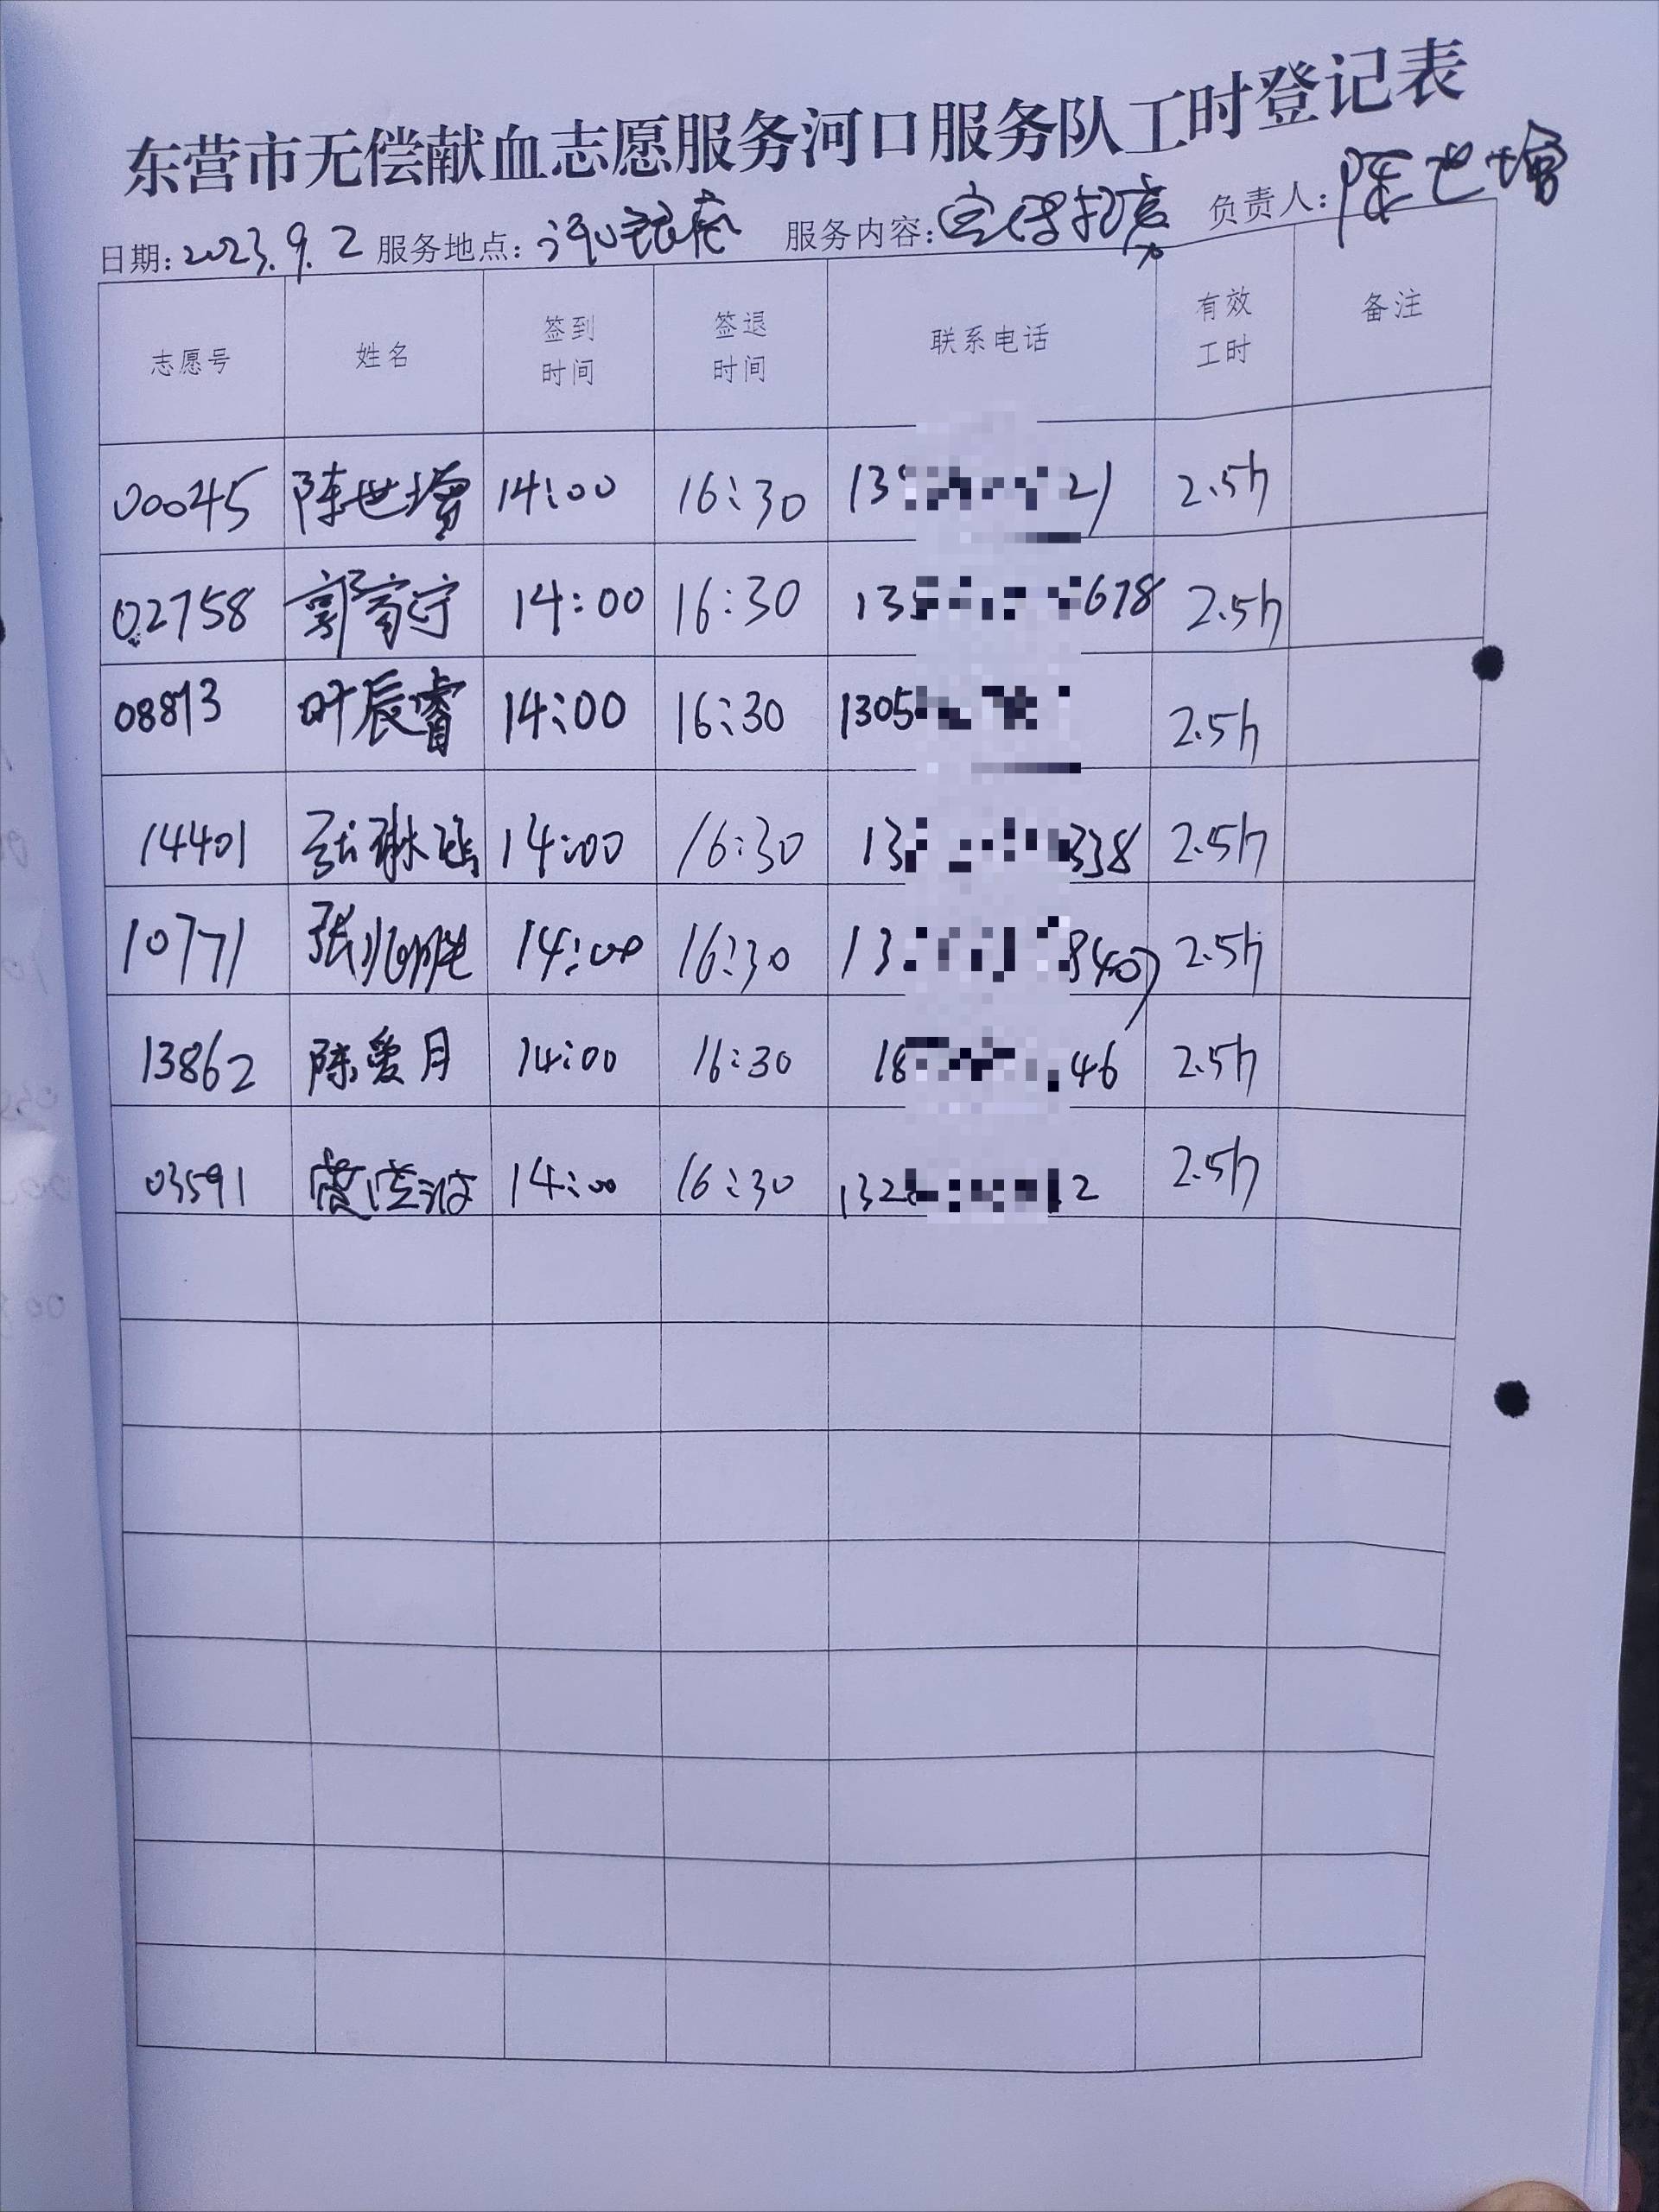 东营市无偿献血志愿服务河口服务队工时登记表
日期：2023.9.2 服务地点： 服务内容：宣传招募 负责人：陈世增
志愿号 姓名 签到时间 签退时间 联系电话 有效工时 备注
00045 陈世增 14:00 16:30 13 21 2.5h
02758 郭富宁 14:00 16:30 13 678 2.5h
08813 叶辰睿 14:00 16:30 1305 2.5h
14401 张琳 14:00 16:30 13 338 2.5h
10771 张 14:00 16:30 13 8407 2.5h
13862 陈爱月 14:00 16:30 18 46 2.5h
03591 14:00 16:30 132 2 2.5h